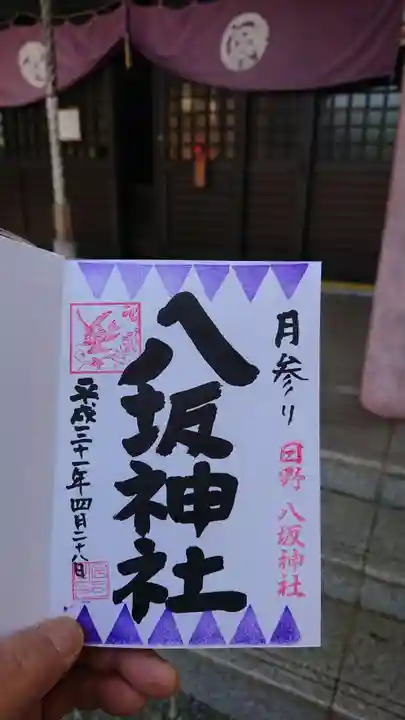 月参り
日野八坂神社
八坂神社
平成三十一年四月二十八日